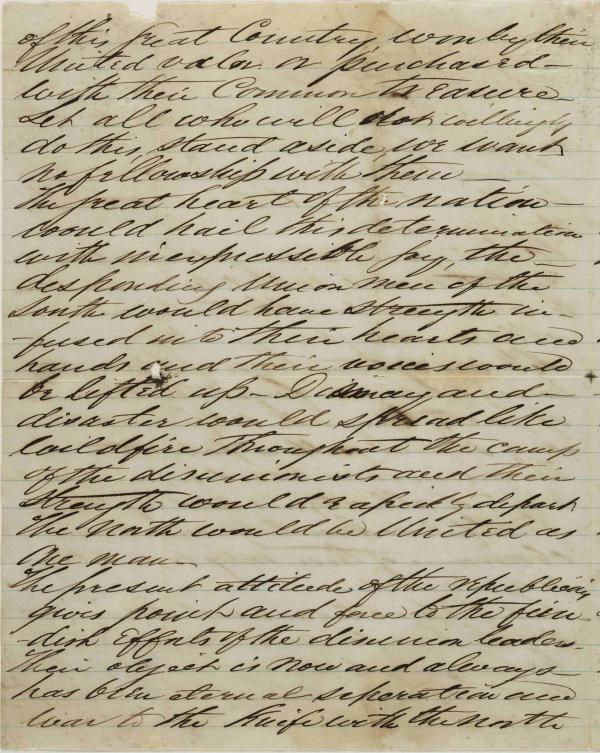 of this great Country won by their
United valor or purchased
with their Common treasure
Let all who will not willingly
do this, stand aside, we want
no fellowship with them
The great heart of the nation
would hail this determination
with inexpressible joy, the
desponding Union men of the
South would have strength in-
fused into their hearts and
hands and their voices would
be lifted up - Dismay and
disaster would spread like
wildfire throughout the camp
of the disunionists and their
strength would rapidly depart
The North would be United as
one man
The present attitude of the republicans
gives point and force to the fien-
dish efforts of the disunion leaders
Their object is now and always
has been eternal seperation and
war to the Knife with the north